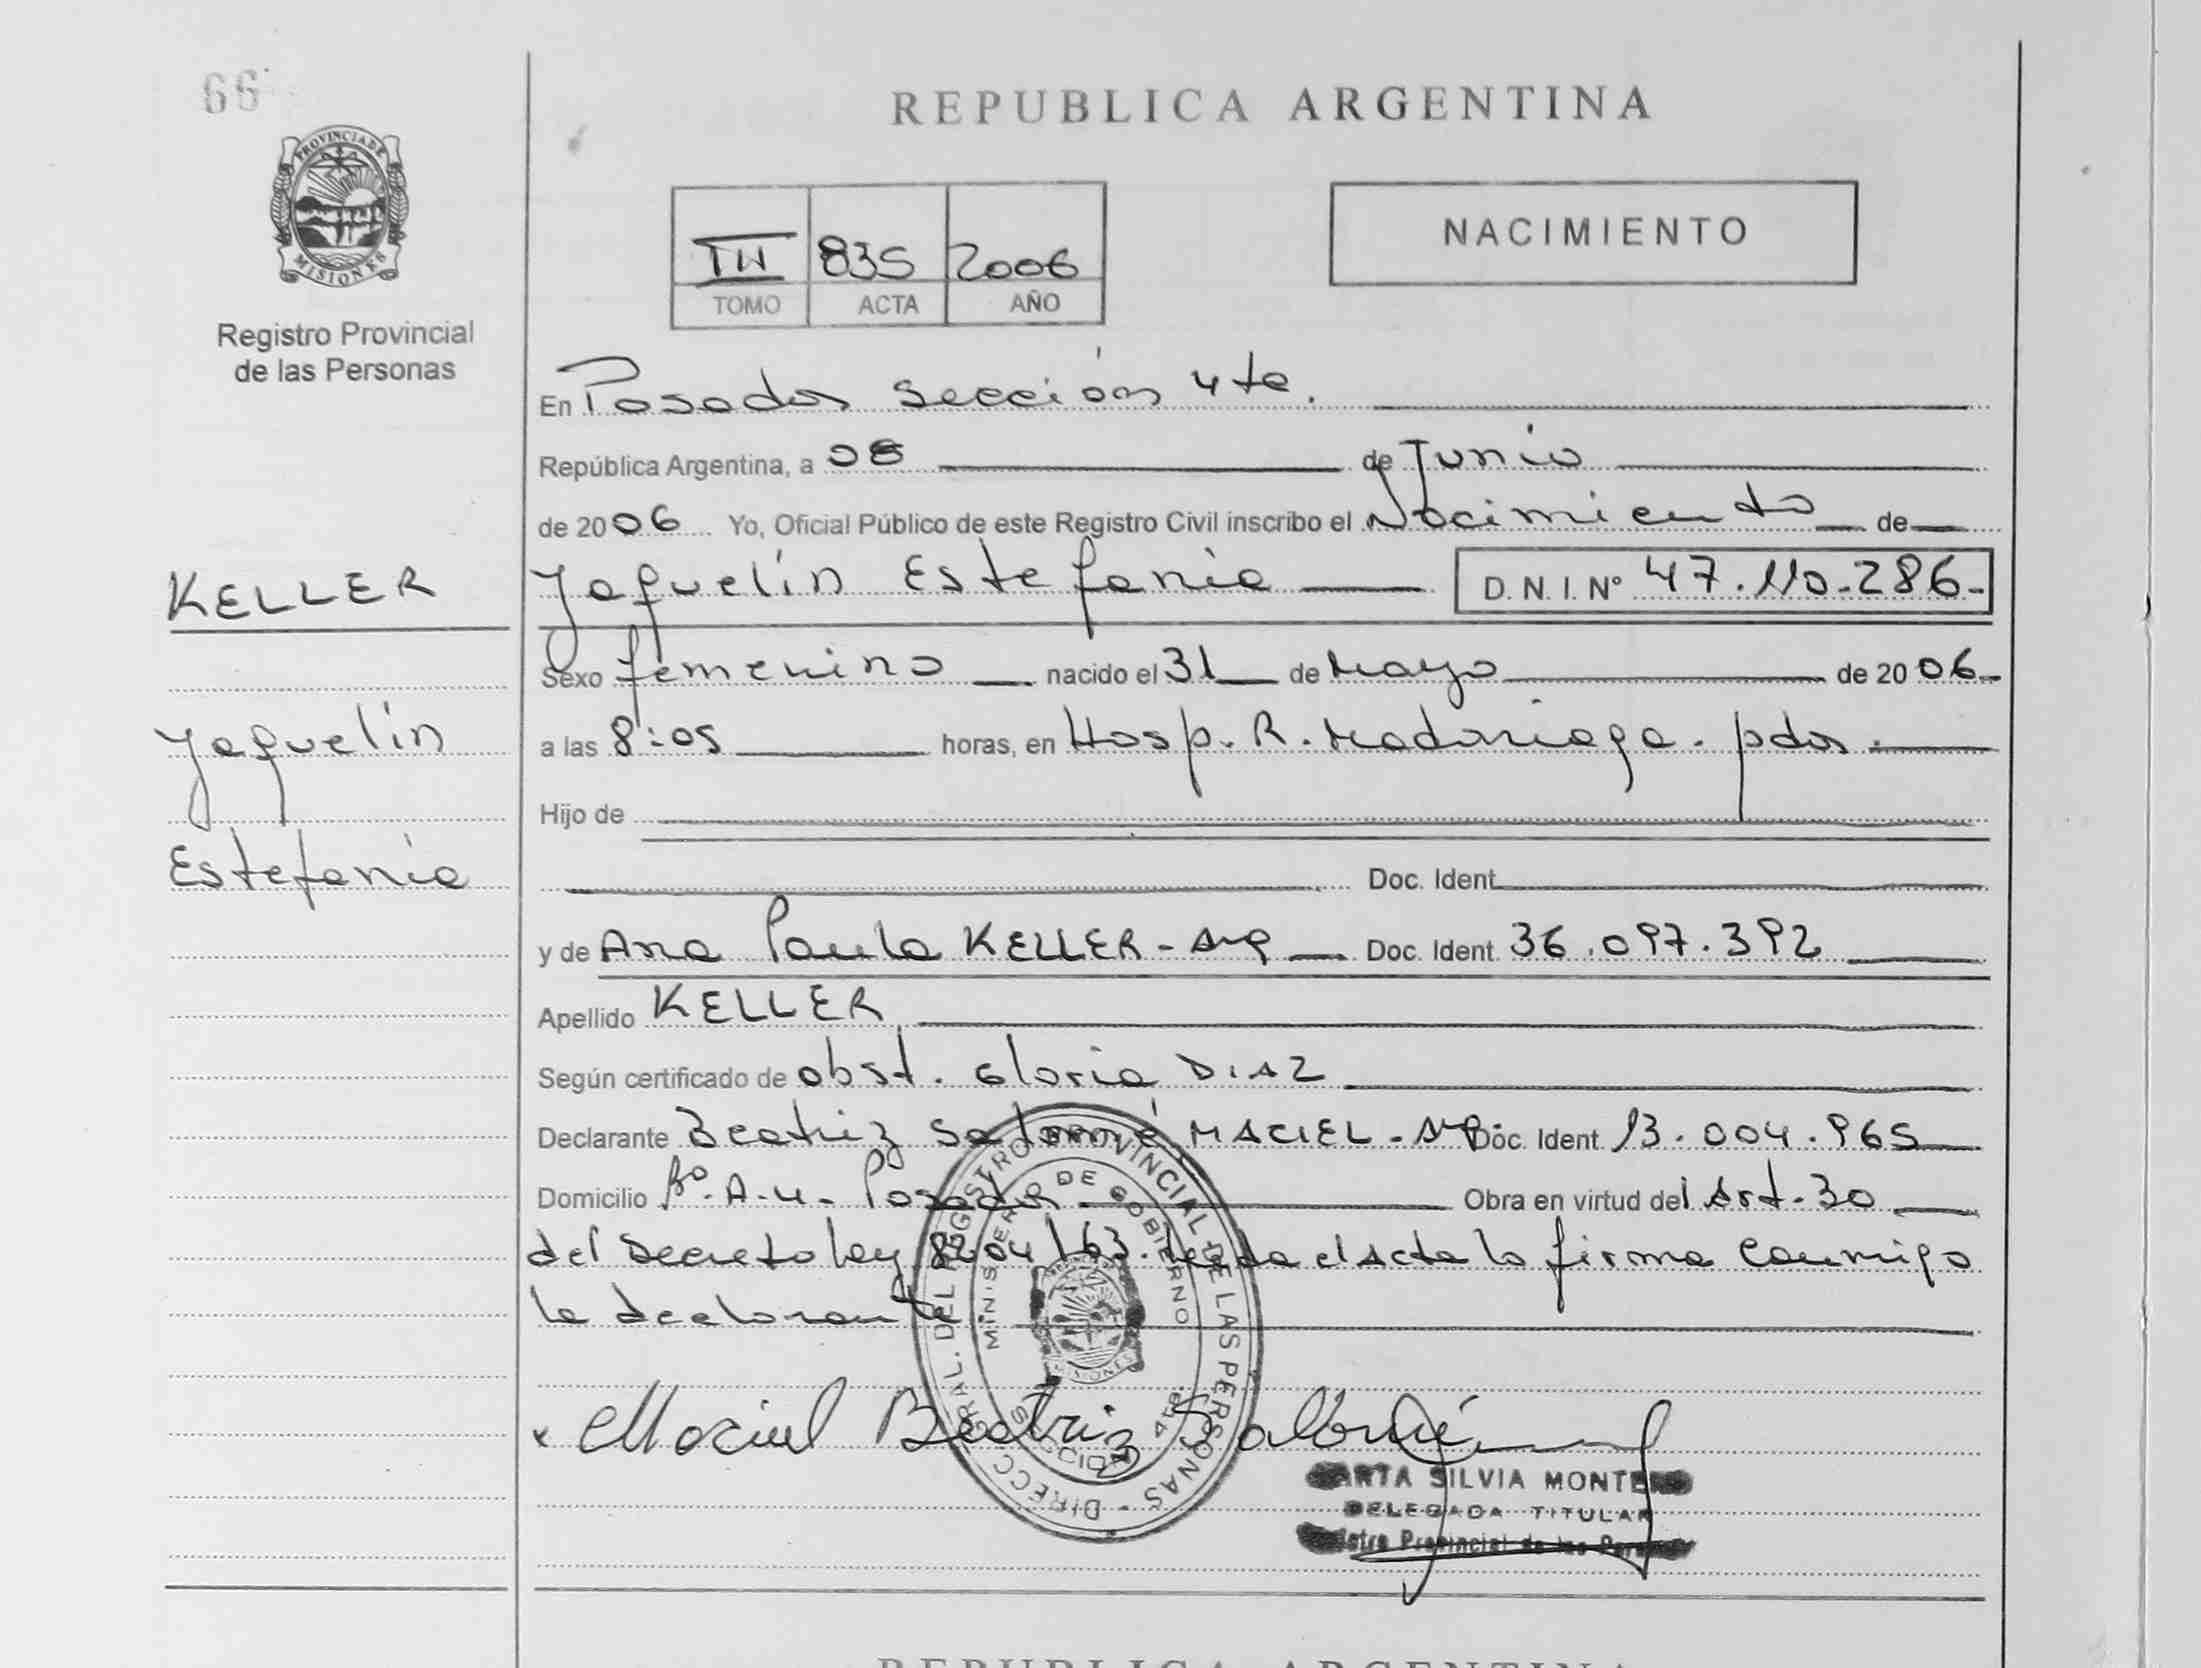 66
PROVINCIA DE
MISIONES
Registro Provincial
de las Personas
REPUBLICA ARGENTINA
III 835 2006
TOMO ACTA AÑO
NACIMIENTO
En Posadas sección 4ta.
República Argentina, a 08 de Junio
de 2006 Yo, Oficial Público de este Registro Civil inscribo el Nacimiento de
KELLER
Yaquelín Estefania D.N.I. Nº 47.110.286-
Sexo femenino nacido el 31 de Mayo de 2006-
Yaquelín
a las 8:05 horas, en Hosp. R. Madariaga. pdas.
Hijo de
Estefania
Doc. Ident.
y de Ana Paula KELLER - Arg Doc. Ident. 36.097.392
Apellido KELLER
Según certificado de obst. Gloria DIAZ
Declarante Beatriz Salomé MACIEL - Doc. Ident. 13.004.965
Domicilio Bº. A-4- Posadas Obra en virtud del Art-30
del Decreto ley 8204/63. leída el Acta la firma conmigo
la declarante.
DIRECC. GRAL. DEL REGISTRO PROVINCIAL DE LAS PERSONAS -
MINISTERIO DE GOBIERNO
MISIONES
SECCION 4ta
x Maciel Beatriz Salomé
MARTA SILVIA MONTERO
DELEGADA TITULAR
Registro Provincial de las Personas
REPUBLICA ARGENTINA